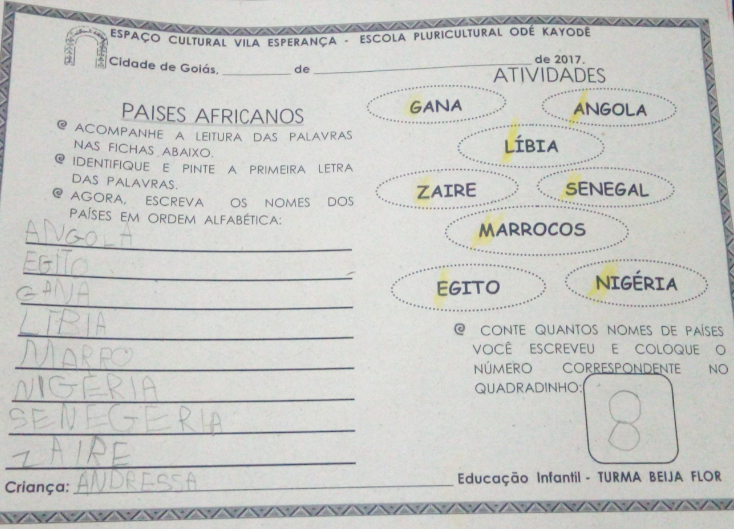 ESPAÇO CULTURAL VILA ESPERANÇA - ESCOLA PLURICULTURAL ODÉ KAYODÊ
Cidade de Goiás, ________ de ____________________ de 2017.
ATIVIDADES
PAISES AFRICANOS
@ ACOMPANHE A LEITURA DAS PALAVRAS
NAS FICHAS ABAIXO.
@ IDENTIFIQUE E PINTE A PRIMEIRA LETRA
DAS PALAVRAS.
@ AGORA, ESCREVA OS NOMES DOS
PAÍSES EM ORDEM ALFABÉTICA:
ANGOLA
EGITO
GANA
LIBIA
MARRO
NIGERIA
SENEGERIA
ZAIRE
GANA
ANGOLA
LÍBIA
ZAIRE
SENEGAL
MARROCOS
EGITO
NIGÉRIA
@ CONTE QUANTOS NOMES DE PAÍSES
VOCÊ ESCREVEU E COLOQUE O
NÚMERO CORRESPONDENTE NO
QUADRADINHO:
8
Criança: ANDRESSA
Educação Infantil - TURMA BEIJA FLOR